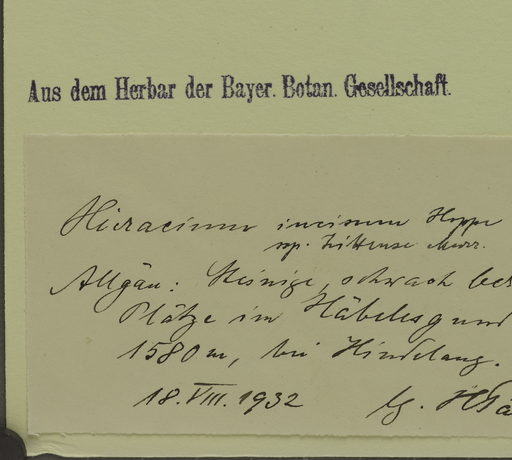 Aus dem Herbar der Bayer. Botan. Gesellschaft.
Hieracium incisum Hoppe
ssp. Murr.
Allgäu: Steinige, schwach
Plätze im Häbelesgund
1580 m, bei Hindelang.
18.VIII.1932 lg.